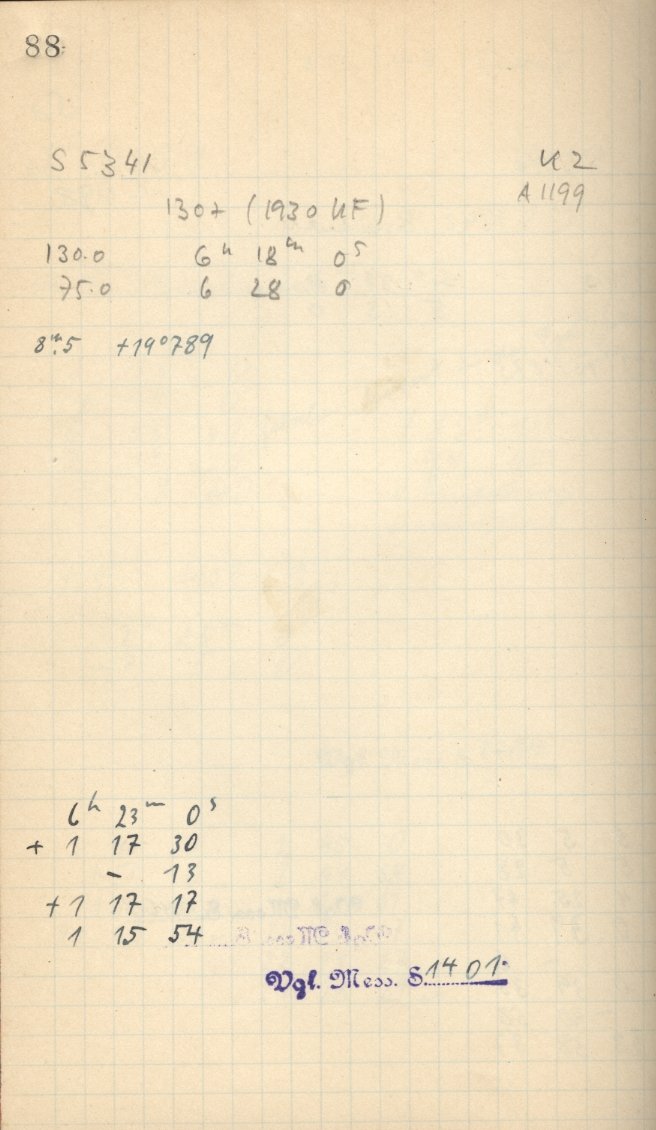 88
S 5341 K 2
A 1199
1307 (1930 KF)
130.0 6ʰ 18ᵐ 0ˢ
75.0 6 28 0
8ᵐ.5 +19°789
6ʰ 23ᵐ 0ˢ
+ 1 17 30
- 13
+1 17 17
1 15 54
Vgl. Mess. S. 1401.